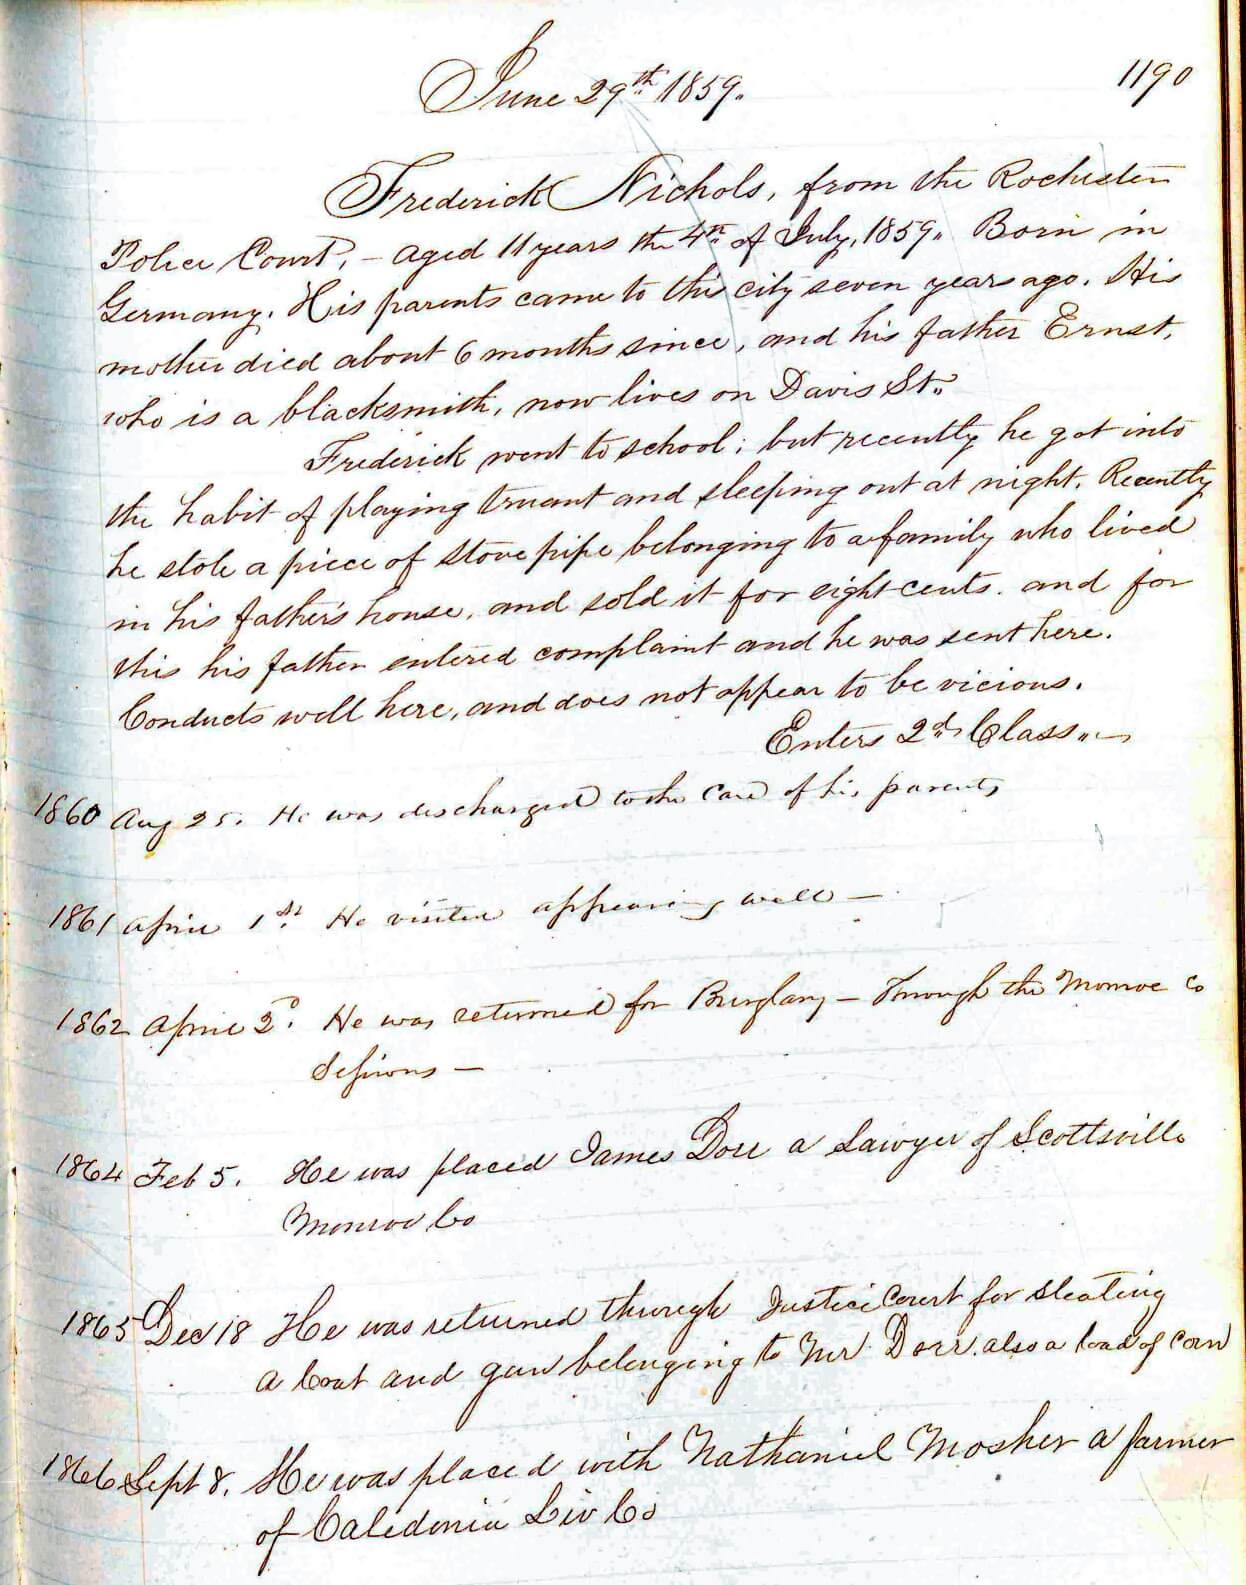 June 29th 1859.
1190
Frederick Nichols, from the Rochester
Police Court, – aged 11 years the 4th of July, 1859. Born in
Germany. His parents came to this city seven years ago. His
mother died about 6 months since, and his father Ernst,
who is a blacksmith, now lives on Davis St.
Frederick went to school; but recently he got into
the habit of playing truant and sleeping out at night. Recently
he stole a piece of stove pipe belonging to a family who lived
in his father's house, and sold it for eight cents. and for
this his father entered complaint and he was sent here.
Conducts well here, and does not appear to be vicious.
Enters 2d Class. —
1860 Aug 25. He was discharged to the Care of his parents
1861 April 1st. He visited appearing well —
1862 April 2d. He was returned for Burglary – Through the Monroe Co
Sessions —
1864 Feb 5. He was placed James Dorr a Lawyer of Scottsville
Monroe Co
1865 Dec 18 He was returned through Justice Court for steating
a Coat and gun belonging to Mr Dorr. also a load of corn
1866 Sept 8. He was placed with Nathaniel Mosher a farmer
of Caledonia Liv Co